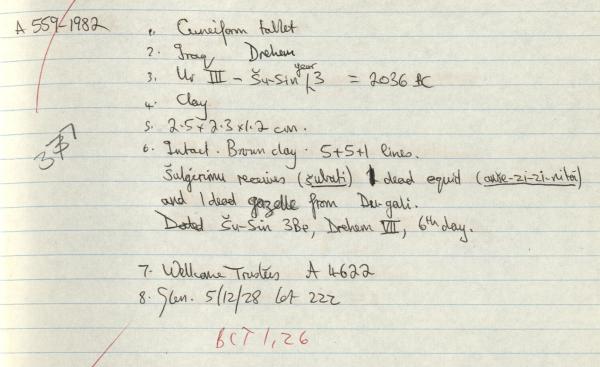 A 559-1982
1. Cuneiform tablet
2. Iraq Drehem
3. Ur III - Šu-Sin year 3 = 2036 BC
4. Clay
5. 2.5 x 2.3 x 1.2 cm.
6. Intact. Brown clay. 5+5+1 lines.
Šulgirimu receives (šubati) 1 dead equid (anše-zi-zi-nitá)
and 1 dead gazelle from Du-gali.
Dated Šu-Sin 3Be, Drehem VII, 6th day.
7. Wellcome Trustees A 4622
8. Glen. 5/12/28 lot 222
BCT 1, 26